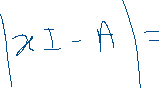 |xI - A| =